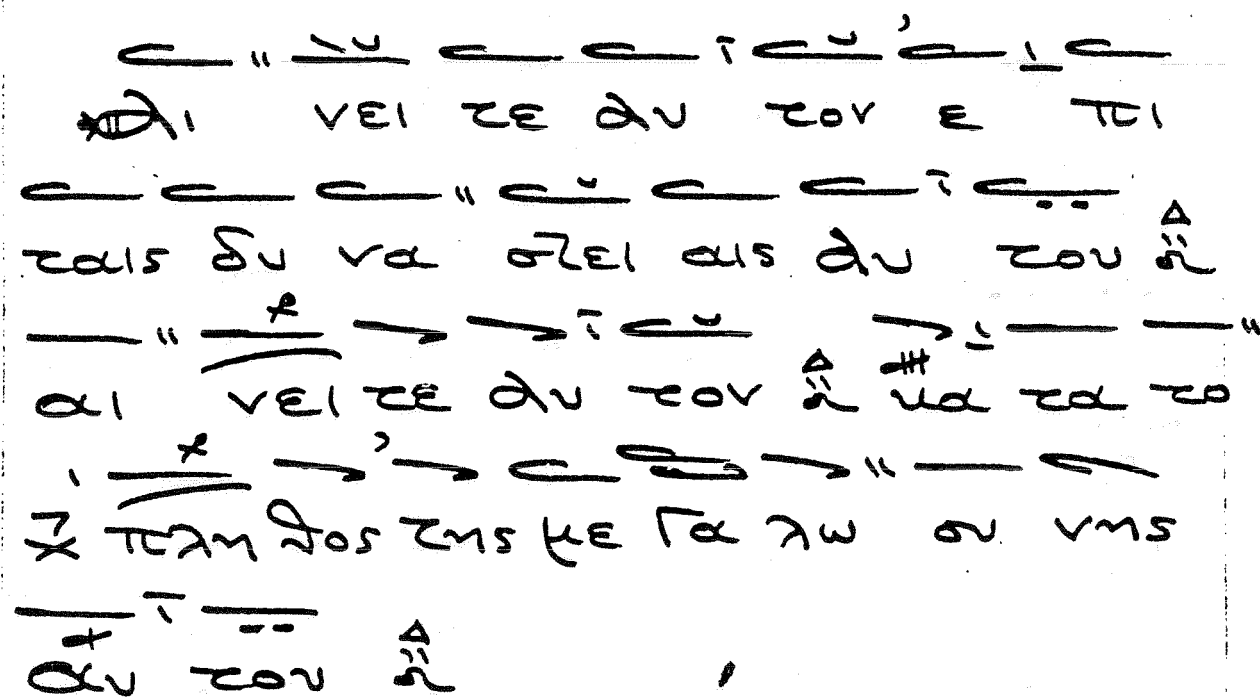 αι νει τε αυ τον ε πι
ταις δυ να στει αις αυ του
αι νει τε αυ τον κα τα το
πλη θος της με γα λω συ νης
αυ του